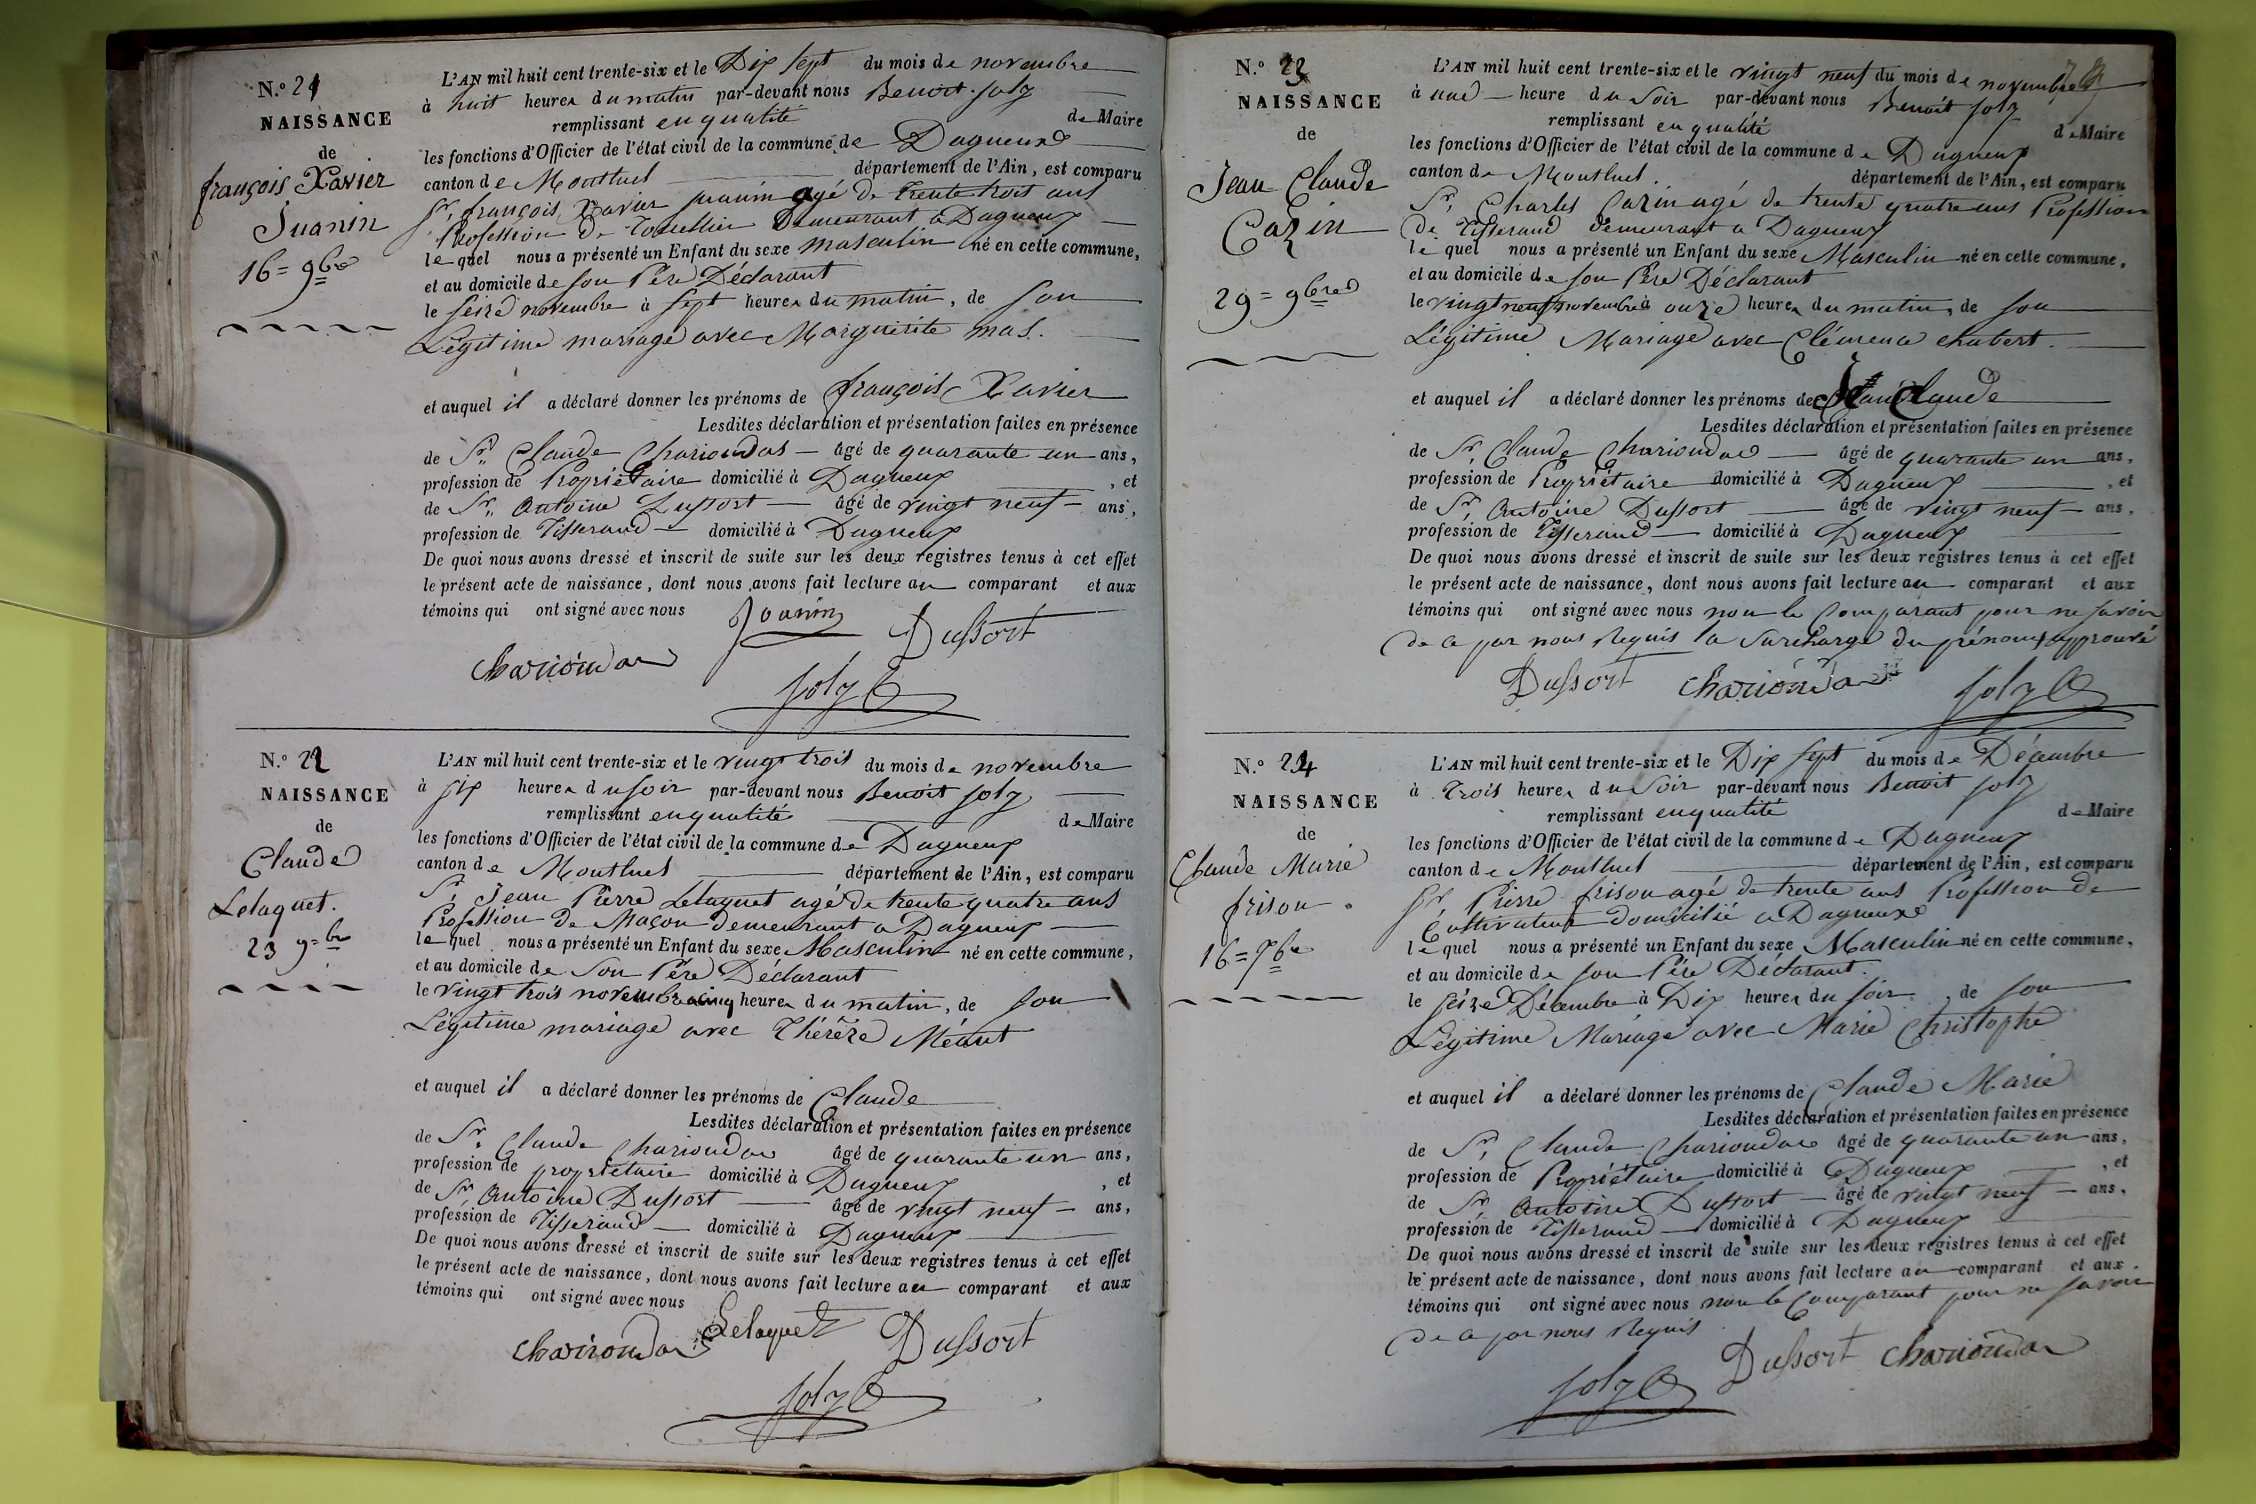 N.º 21
NAISSANCE
de
françois Xavier
Juanin
16 = 9bre
L'AN mil huit cent trente-six et le Dix sept du mois de novembre
à huit heures du matin par-devant nous Benoit Joly
remplissant en qualité de Maire
les fonctions d'Officier de l'état civil de la commune de Dagneux
canton de Montluel département de l'Ain, est comparu
Sr. françois Xavier juanin agé de trente trois ans
Profession de Tonellier Demeurant à Dagneux
lequel nous a présenté un Enfant du sexe masculin né en cette commune,
et au domicile de son Père Déclarant
le seize novembre à sept heures du matin, de son
Légitime mariage avec Marguerite mas.
et auquel il a déclaré donner les prénoms de françois Xavier
Lesdites déclaration et présentation faites en présence
de Sr. Claude Charioudas âgé de quarante un ans,
profession de Propriétaire domicilié à Dagneux , et
de Sr. Antoine Dussort âgé de vingt neuf ans,
profession de Tisserand domicilié à Dagneux
De quoi nous avons dressé et inscrit de suite sur les deux registres tenus à cet effet
le présent acte de naissance, dont nous avons fait lecture au comparant et aux
témoins qui ont signé avec nous
Jouanin Dussort
Charioudas
Joly
N.º 22
NAISSANCE
de
Claude
Lelaquet.
23 9=bre
L'AN mil huit cent trente-six et le vingt trois du mois de novembre
à six heures du soir par-devant nous Benoit Joly
remplissant en qualité de Maire
les fonctions d'Officier de l'état civil de la commune de Dagneux
canton de Montluel département de l'Ain, est comparu
Sr. Jean Pierre Lelaquet agé de trente quatre ans
Profession de Maçon Demeurant à Dagneux
lequel nous a présenté un Enfant du sexe Masculin né en cette commune,
et au domicile de Son Père Déclarant
le vingt trois novembre à cinq heures du matin, de son
Légitime mariage avec Thérèze Méant
et auquel il a déclaré donner les prénoms de Claude
Lesdites déclaration et présentation faites en présence
de Sr. Claude Charioudas âgé de quarante un ans,
profession de propriétaire domicilié à Dagneux , et
de Sr. Antoine Dussort âgé de vingt neuf ans,
profession de Tisserand domicilié à Dagneux
De quoi nous avons dressé et inscrit de suite sur les deux registres tenus à cet effet
le présent acte de naissance, dont nous avons fait lecture au comparant et aux
témoins qui ont signé avec nous
Charioudas Lelaquet Dussort
Joly
N.º 23
NAISSANCE
de
Jean Claude
Cazin
29 = 9bre
L'AN mil huit cent trente-six et le vingt neuf du mois de novembre
à une heure du Soir par-devant nous Benoit Joly
remplissant en qualité de Maire
les fonctions d'Officier de l'état civil de la commune de Dagneux
canton de Montluel. département de l'Ain, est comparu
Sr. Charles Cazin agé de trente quatre ans Profession
de Tisserand Demeurant a Dagneux
lequel nous a présenté un Enfant du sexe Masculin né en cette commune,
et au domicile de son Père Déclarant
le vingt neuf novembre à onze heures du matin, de son
Légitime Mariage avec Clémence chabert.
et auquel il a déclaré donner les prénoms de Claude
Lesdites déclaration et présentation faites en présence
de Sr. Claude Charioudas âgé de quarante un ans,
profession de Propriétaire domicilié à Dagneux , et
de Sr. Antoine Dussort âgé de vingt neuf ans,
profession de Tisserand domicilié à Dagneux
De quoi nous avons dressé et inscrit de suite sur les deux registres tenus à cet effet
le présent acte de naissance, dont nous avons fait lecture au comparant et aux
témoins qui ont signé avec nous non le Comparant pour ne savoir
de ce par nous Requis la surcharge du prénom approuvé
Dussort Charioudas Joly
N.º 24
NAISSANCE
de
Claude Marie
frison.
16 = Xbre
L'AN mil huit cent trente-six et le Dix sept du mois de Décembre
à trois heures du Soir par-devant nous Benoit Joly
remplissant en qualité de Maire
les fonctions d'Officier de l'état civil de la commune de Dagneux
canton de Montluel département de l'Ain, est comparu
Sr. Pierre frison agé de trente ans Profession de
Cultivateur domicilié a Dagneux
lequel nous a présenté un Enfant du sexe Masculin né en cette commune,
et au domicile de son Père Déclarant.
le seize Décembre à Dix heures du soir, de son
Légitime Mariage avec Marie Christophe
et auquel il a déclaré donner les prénoms de Claude Marie
Lesdites déclaration et présentation faites en présence
de Sr. Claude Charioudas âgé de quarante un ans,
profession de Propriétaire domicilié à Dagneux , et
de Sr. Antoine Dussort âgé de vingt neuf ans,
profession de Tisserand domicilié à Dagneux
De quoi nous avons dressé et inscrit de suite sur les deux registres tenus à cet effet
le présent acte de naissance, dont nous avons fait lecture au comparant et aux
témoins qui ont signé avec nous non le Comparant pour ne savoir
de ce par nous Requis
Dussort Charioudas
Joly